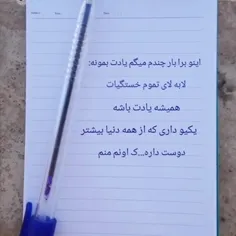 اینو برا بار چندم میگم یادت بمونه:
لابه لای تموم خستگیات
همیشه یادت باشه
یکیو داری که از همه دنیا بیشتر
دوست داره...ک اونم منم